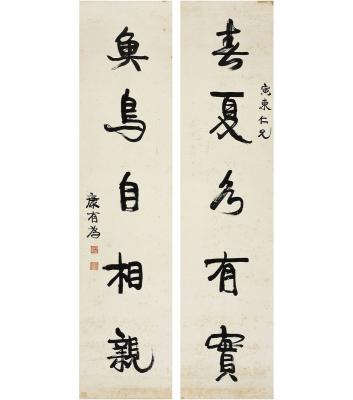 春夏各有實
寅東仁兄
魚鳥自相親
康有為